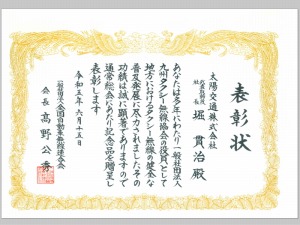 表彰状
太陽交通株式会社
代表取締役
社長
堀 貫治 殿
あなたは多年にわたり一般社団法人
九州タクシー無線協会の役員として
地方におけるタクシー無線の健全な
普及発展に尽力されました その
功績は誠に顕著でありますので
通常総会にあたり記念品を贈呈し
表彰します
令和五年六月十五日
一般社団法人全国自動車無線連合会
会長 高野公秀